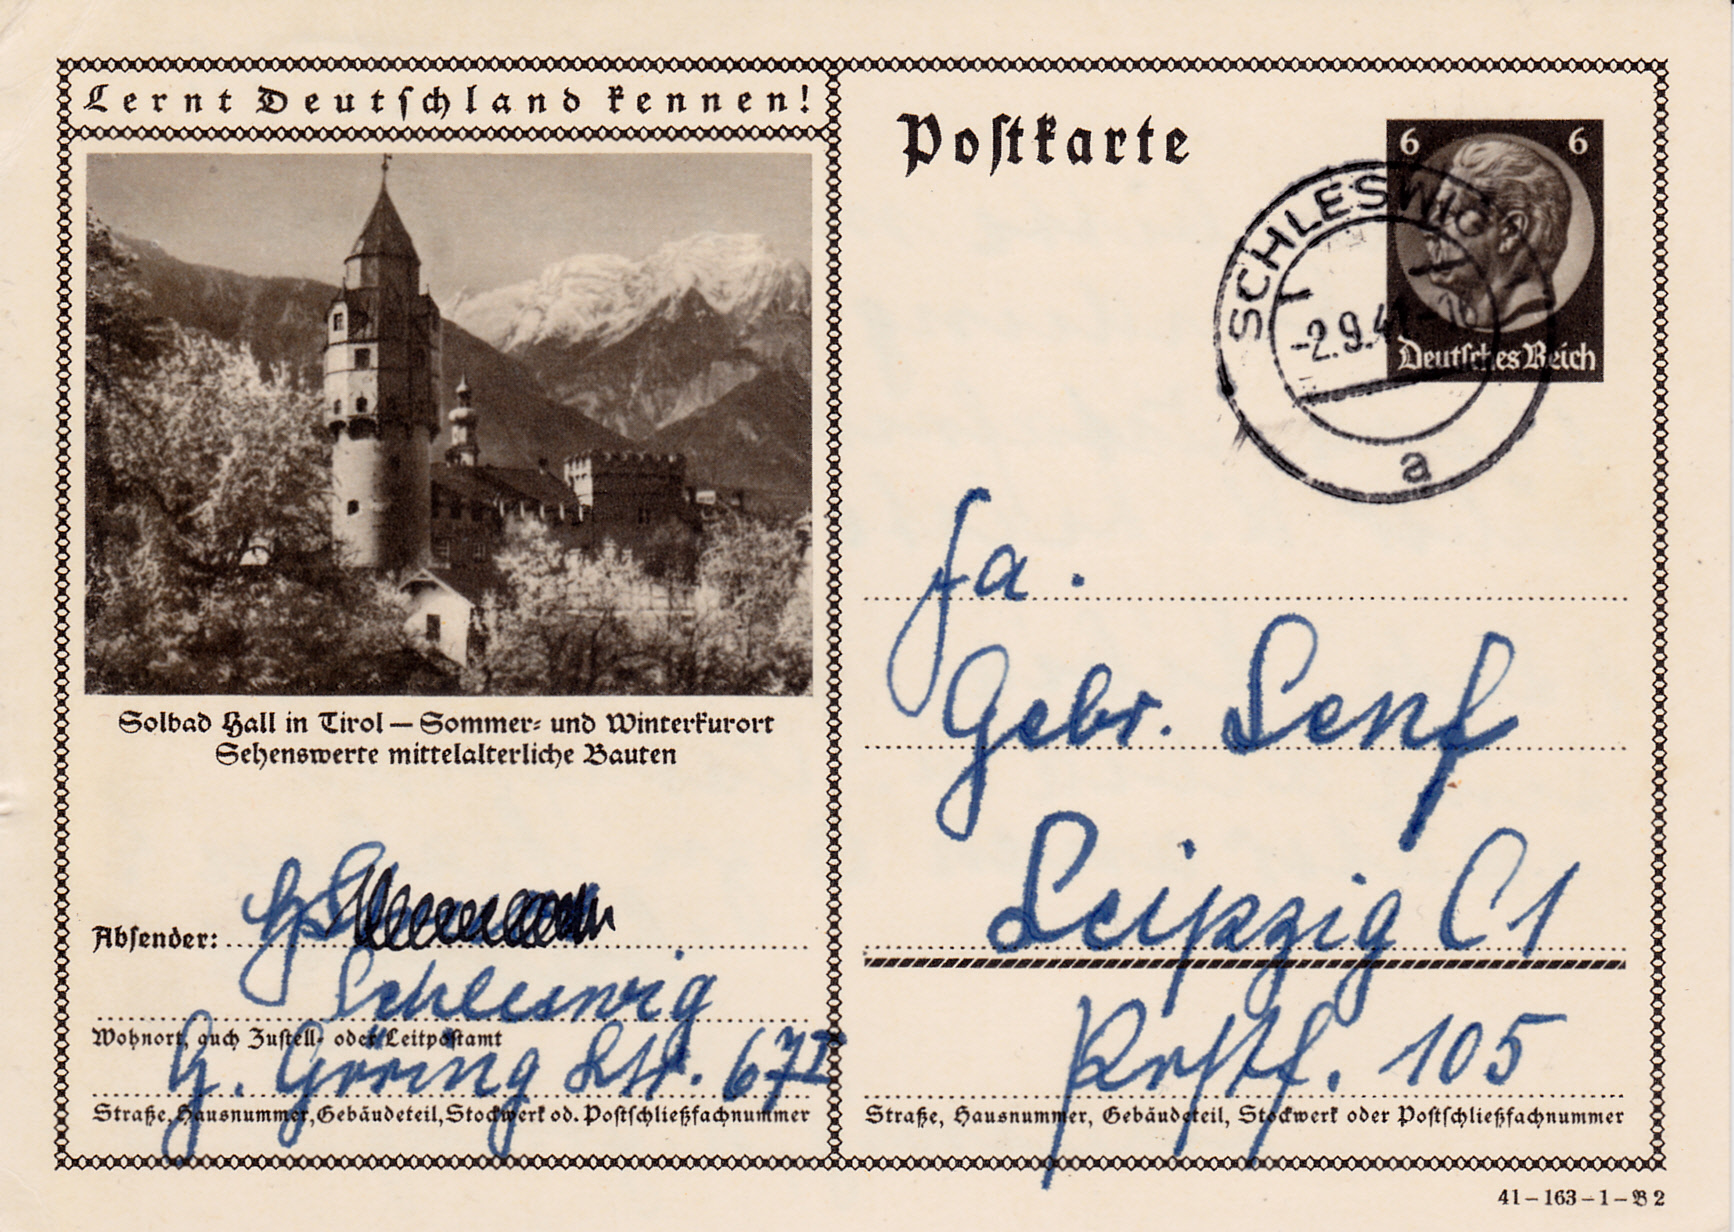 Lernt Deutschland kennen!
Solbad Hall in Tirol — Sommer- und Winterkurort
Sehenswerte mittelalterliche Bauten
Absender:
Schleswig
Wohnort, auch Zustell- oder Leitpostamt
H. Göring Str. 67I
Straße, Hausnummer, Gebäudeteil, Stockwerk od. Postschließfachnummer
Postkarte
6 6
Deutsches Reich
SCHLESWIG
-2.9.41
a
Fa.
Gebr. Senf
Leipzig C1
Postf. 105
Straße, Hausnummer, Gebäudeteil, Stockwerk oder Postschließfachnummer
41 – 163 – 1 – B 2